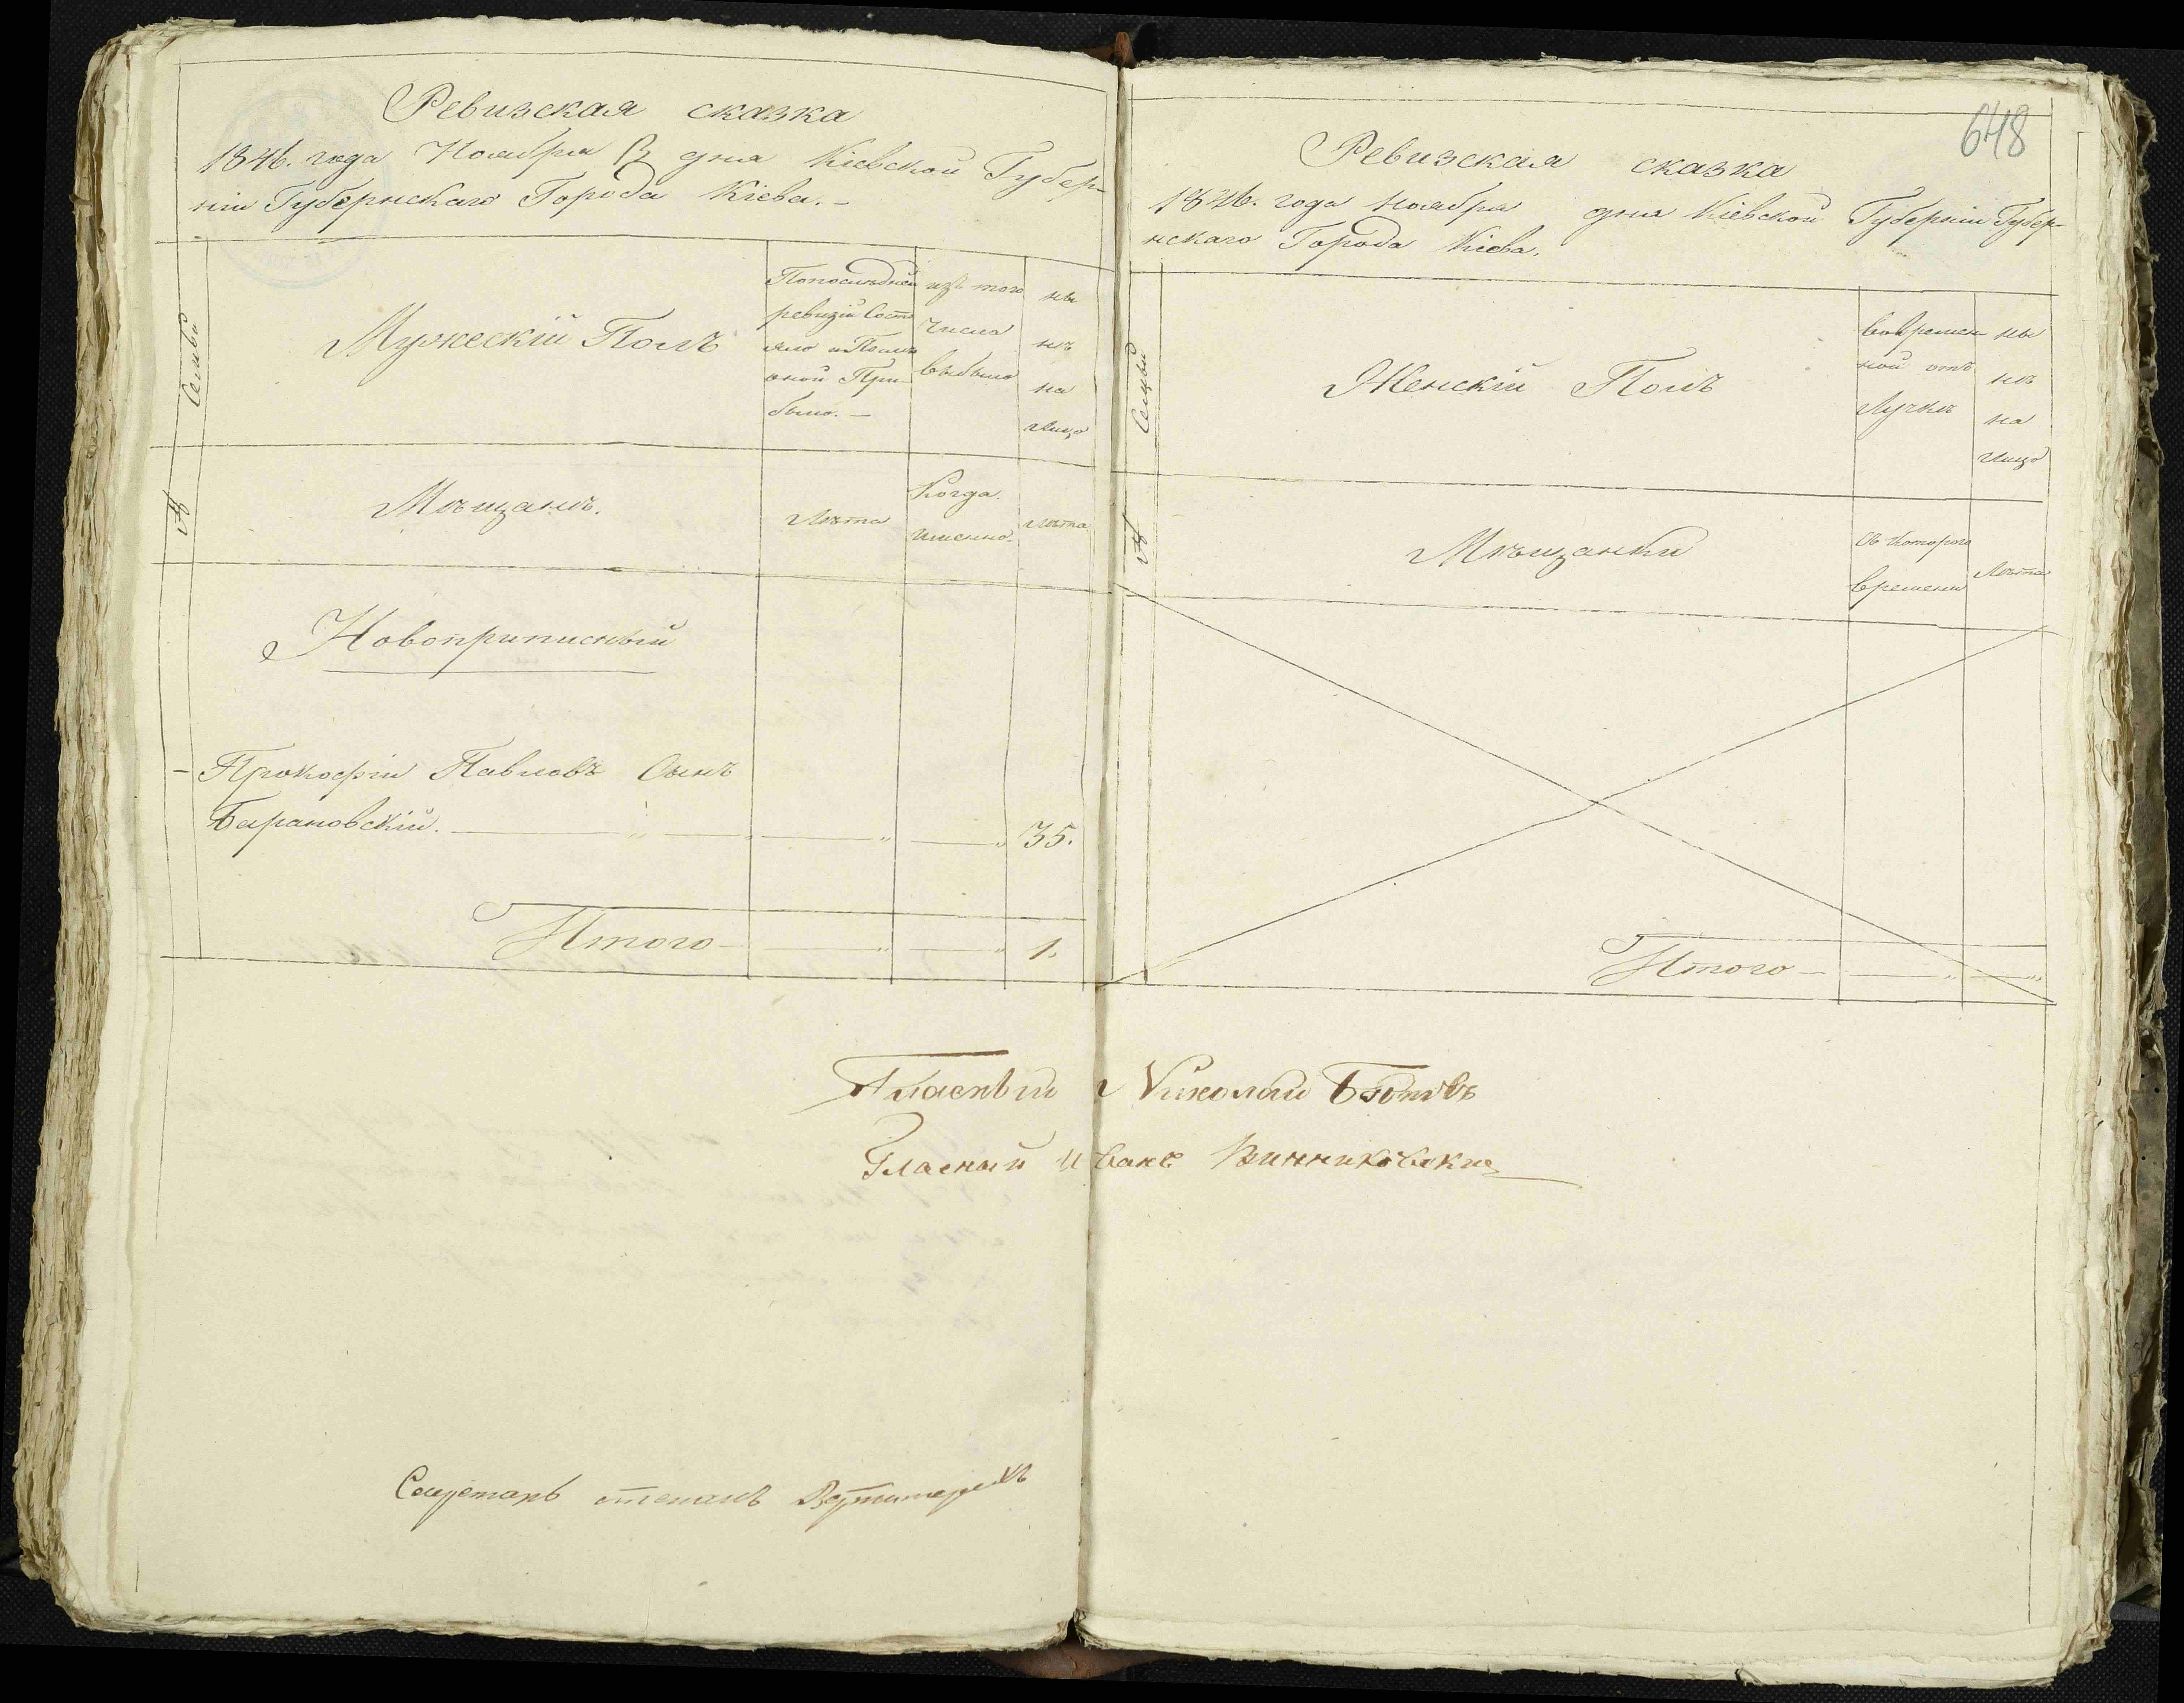 Ревизская сказка
1846. года Ноября дня Кіевской Губер-
ніи Губернскаго Города Кіева. -
№ Семьи
Мужескій Полъ
Попоследней
ревизіи Состо
яло и После
оной При-
было. -
изъ того
числа
выбыло
ны
нѣ
на
лицо
Мѣщанъ.
Лѣта
Когда
именно.
Лѣта
Новоприписный
- Прокофій Павловъ Сынъ
Барановскій. 35.
Итого 1.
648
Ревизская сказка
1846. года Ноября дня Кіевской Губерніи Губер-
нскаго Города Кіева.
№ Семьи
Женскій Полъ
Вовремен
ной отъ
лучкѣ
ны
нѣ
на
лицо
Мѣщанки
Съ котораго
времени
Лѣта
Итого -
Гласный Николай
Гласный Иванъ Винниковский
Секретарь Степанъ